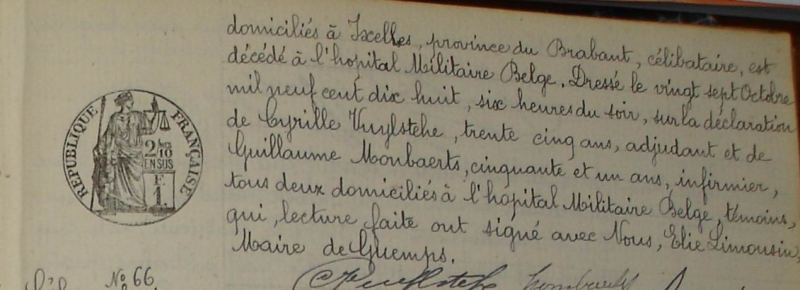 domiciliés à Ixelles, province du Brabant, célibataire, est
décédé à l'hopital Militaire Belge. Dressé le vingt sept Octobre
mil neuf cent dix huit, six heures du soir, sur la déclaration
de Cyrille Vuylsteke, trente cinq ans, adjudant et de
Guillaume Monbaerts, cinquante et un ans, infirmier,
tous deux domiciliés à l'hopital Militaire Belge, témoins,
qui, lecture faite ont signé avec Nous, Elie Limousin,
Maire de Guemps.
RÉPUBLIQUE FRANÇAISE
2/10
EN SUS
F.
1
No 66